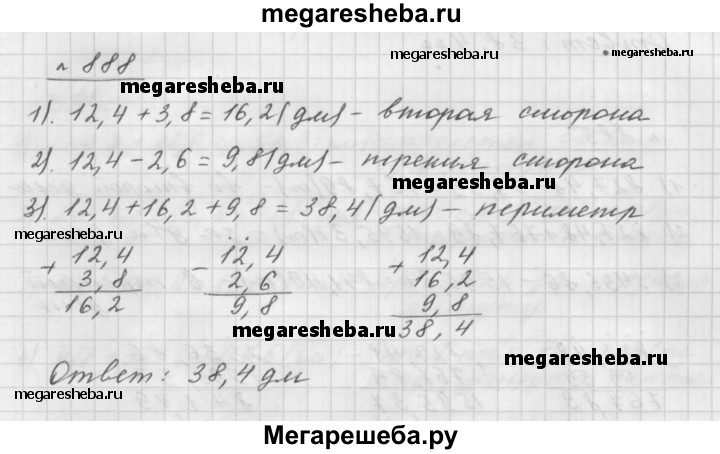 megaresheba.ru
megaresheba.ru megaresheba.ru
№ 888
megaresheba.ru
1). 12,4 + 3,8 = 16,2 (дм) – вторая сторона
2). 12,4 – 2,6 = 9,8 (дм) – третия сторона
megaresheba.ru
3). 12,4 + 16,2 + 9,8 = 38,4 (дм) – периметр
megaresheba.ru
+ 12,4 – 12,4 + 12,4
3,8 2,6 16,2
16,2 9,8 9,8
38,4
megaresheba.ru
megaresheba.ru
Ответ: 38,4 дм
megaresheba.ru megaresheba.ru
Мегарешеба.ру